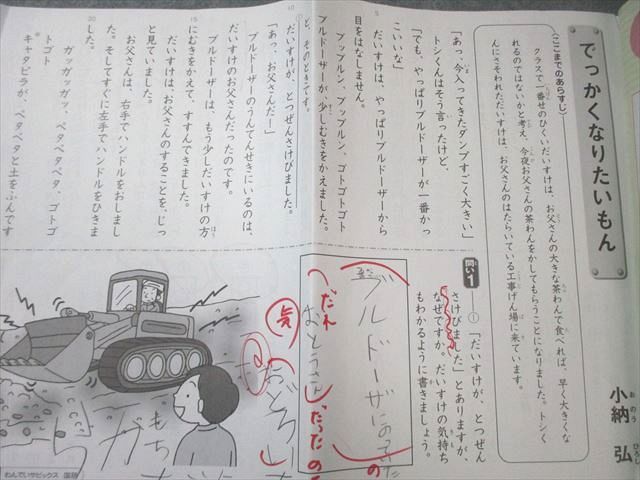 でっかくなりたいもん
小納 弘
お のう ひろし
〈ここまでのあらすじ〉
クラスで一番せのひくいだいすけは、お父さんの大きな茶わんで食べれば、早く大きくな
れるのではないかと考え、今夜お父さんの茶わんをかしてもらうことになりました。トシく
んにさそわれただいすけは、お父さんのはたらいている工事げん場に来ています。
「あっ、今入ってきたダンプすごく大きい」
トシくんはそう言ったけど、
「でも、やっぱりブルドーザーが一番かっ
こいいな」
5
だいすけは、やっぱりブルドーザーから
目をはなしません。
ブップルン、ブップルン、ゴトゴトゴト
ブルドーザーが、少しむきをかえました。
と、そのときです。
10
①だいすけが、とつぜんさけびました。
「あっ、お父さんだー」
ブルドーザーのうんてんせきにいるのは、
だいすけのお父さんだったのです。
ブルドーザーは、もう少しだいすけの方
15
にむきをかえて、すすんできました。
だいすけは、お父さんのすることを、じっ
と見ていました。
お父さんは、右手でハンドルをおしまし
た。そしてすぐに左手でハンドルをひきま
20
した。
ガッガッガッ、ペタペタペタ、ゴトゴ
トゴト
キャタピラが、ペタペタと土をふんです
問い1
――①「だいすけが、とつぜん
さけびました」とありますが、
なぜですか。だいすけの気持ち
もわかるように書きましょう。
ブルドーザにのっていた
の
だれ
おとうさん
だった の
気
おどろい
もち
わんでいサピックス 国語